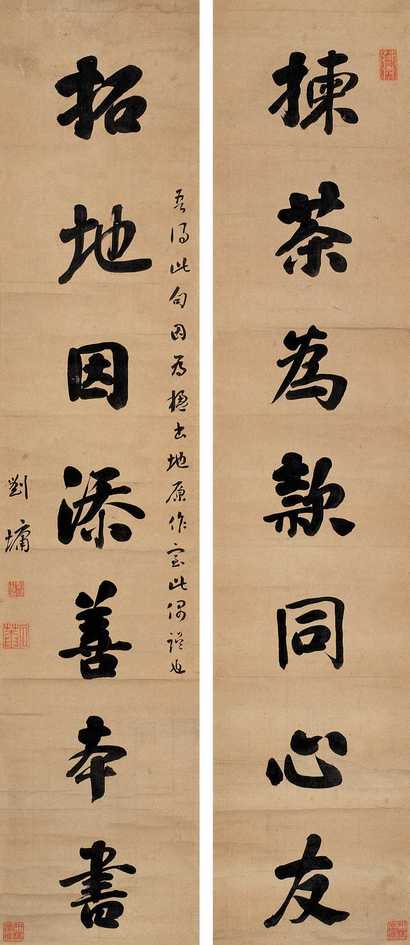 揀茶為款同心友
拓地因添善本書
吾得此句因為楹出地原作室此偶誤也
劉墉